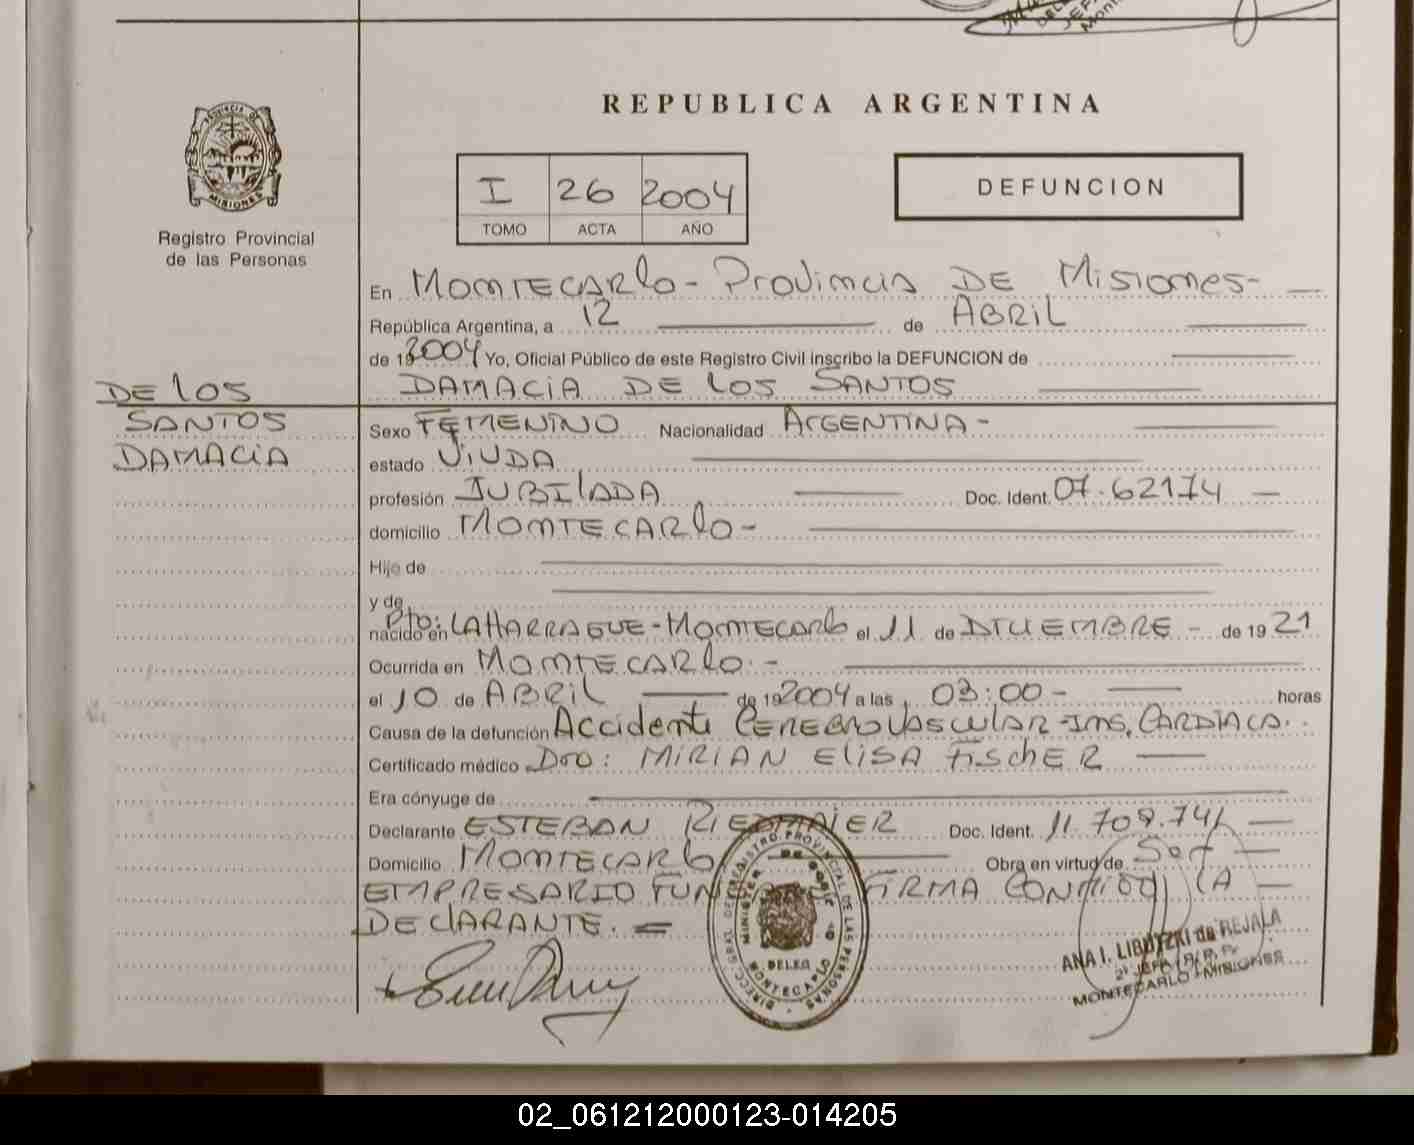 REPUBLICA ARGENTINA
PROVINCIA D
MISIONES
Registro Provincial
de las Personas
I 26 2004
TOMO ACTA AÑO
DEFUNCION
En MONTECARLO - PROVINCIA DE MISIONES -
República Argentina, a 12 de ABRIL
de 19 2004 Yo, Oficial Público de este Registro Civil inscribo la DEFUNCION de
DAMACIA DE LOS SANTOS
DE LOS
SANTOS
DAMACIA
Sexo FEMENINO Nacionalidad ARGENTINA -
estado VIUDA
profesión JUBILADA Doc. Ident. 07.62174
domicilio MONTECARLO -
Hijo de
y de
nacido en Pto: LAHARRAGUE - MONTECARLO el 11 de DICIEMBRE - de 19 21
Ocurrida en MONTECARLO. -
el 10 de ABRIL de 19 2004 a las 03:00 - horas
Causa de la defunción Accidente CEREBROVASCULAR - INS. CARDIACA.
Certificado médico Dro: MIRIAN ELISA FISCHER
Era cónyuge de
Declarante ESTEBAN RIEDMAIER Doc. Ident. 11.709.741
Domicilio MONTECARLO Obra en virtud de Ser
EMPRESARIO FIRMA LA
DECLARANTE. =
DIRECC. GRAL. DE REGISTRO PROVINCIAL DE LAS PERSONAS
DELEG
MONTECARLO
ANA I. LIBUTZKI de REJALA
MONTECARLO - MISIONES
02_061212000123-014205